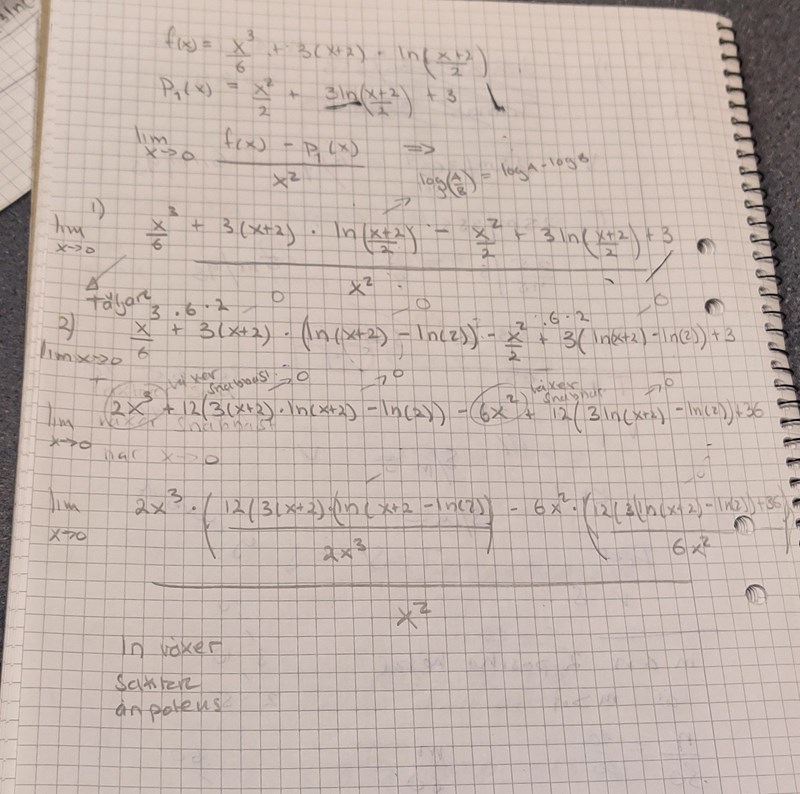 f(x) = x³/6 + 3(x+2) · ln((x+2)/2)
P₁(x) = x²/2 + 3ln((x+2)/2) + 3
lim x→0 (f(x) - P₁(x))/x² ⇒
log(A/B) = log A - log B
1)
lim x→0 (x³/6 + 3(x+2) · ln((x+2)/2) - x²/2 + 3 ln((x+2)/2) + 3)/x²
Täljare
·6·2 0 0 ·6·2 0
2) lim x→0 x³/6 + 3(x+2) · (ln(x+2) - ln(2)) - x²/2 + 3(ln(x+2) - ln(2)) + 3
växer snabbast →0 →0 växer snabbast →0
lim x→0 2x³ + 12(3(x+2) · ln(x+2) - ln(2)) - 6x² + 12(3ln(x+2) - ln(2)) + 36
växer snabbast
när x→0
lim x→0 (2x³ · (12(3(x+2)·(ln(x+2 - ln(2))/2x³) - 6x² · (12(3(ln(x+2) - ln(2)) + 36)/6x²))/x²
ln växer
saktare
än potens